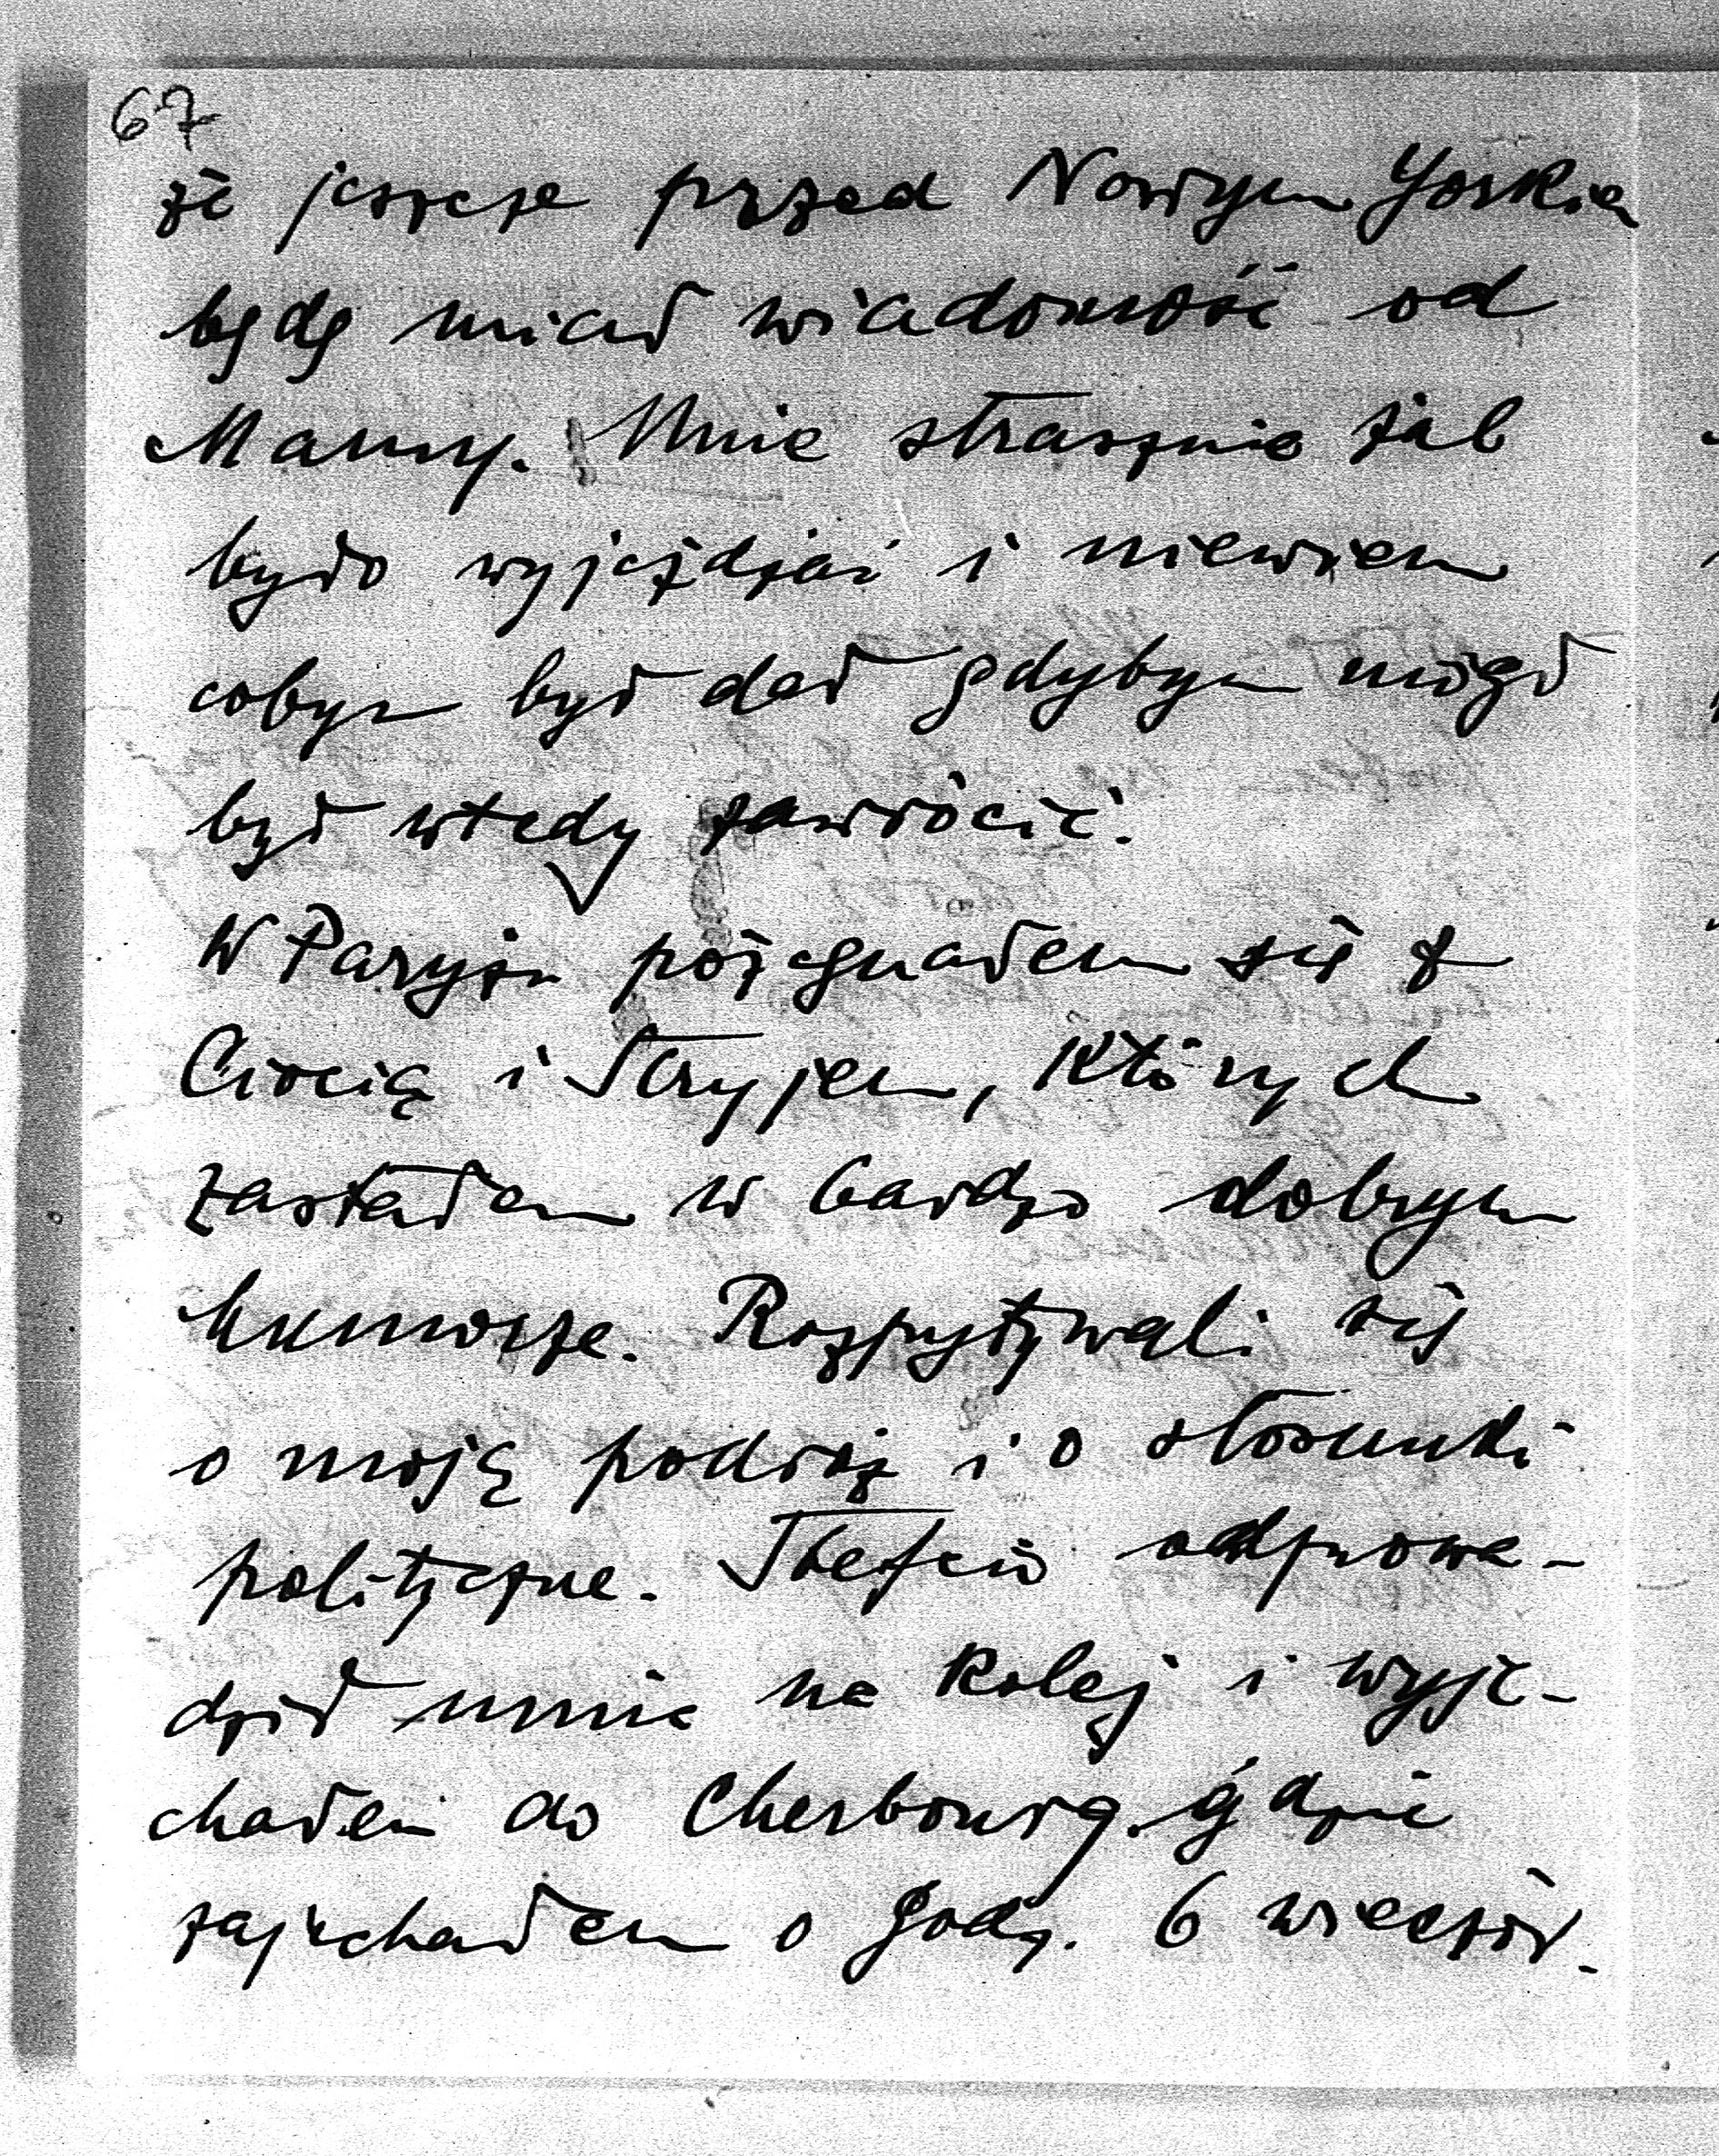 67
że jeszcze przed Nowym Yorkiem
będę miał wiadomość od
Mamy. Mnie strasznie żal
było wyjeżdżać i niewiem
cobym był dał gdybym mógł
był wtedy zawrócić.
W Paryżu pożegnałem się z
Ciocią i Stryjem, których
zastałem w bardzo dobrym
humorze. Rozpytywali się
o moją podróż i o stosunki
polityczne. Stefcio odprowa-
dził mnie na kolej i wyje-
chałem do Cherbourg. gdzie
zajechałem o godz. 6 wieczór.